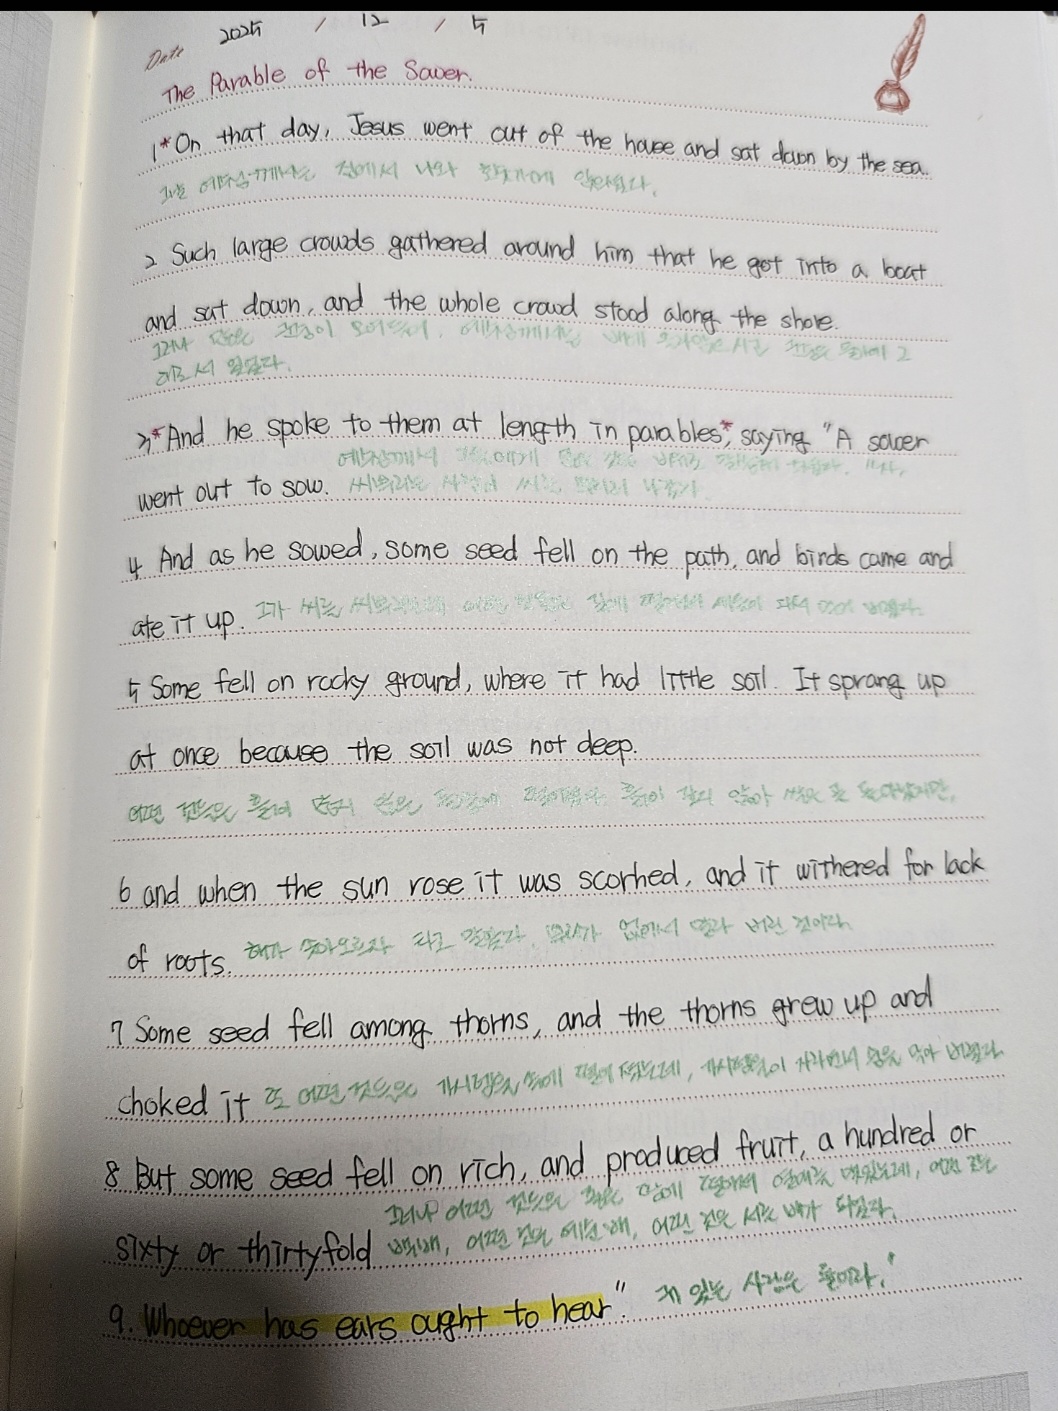 Date 2025 / 12 / 5
The Parable of the Sower.
1 *On that day, Jesus went out of the house and sat down by the sea.
그날 예수님께서는 집에서 나와 호숫가에 앉으셨다.
2 Such large crowds gathered around him that he got into a boat
and sat down, and the whole crowd stood along the shore.
그러자 많은 군중이 모여들어, 예수님께서는 배에 올라앉으시고 군중은 물가에 그
대로 서 있었다.
3 *And he spoke to them at length in parables*, saying "A sower
예수님께서 그들에게 많은 것을 비유로
went out to sow. 씨뿌리는 사람이 씨를 뿌리러 나갔다
4 And as he sowed, some seed fell on the path, and birds came and
ate it up. 그가 씨를 어떤 것들은 길에 떨어져 새들이 와서 먹어 버렸다.
5 Some fell on rocky ground, where it had little soil. It sprang up
at once because the soil was not deep.
어떤 것들은 흙이 많지 않은 돌밭에 떨어졌다 흙이 깊지 않아 싹은 곧 돋아났지만,
6 and when the sun rose it was scorhed, and it withered for lack
of roots. 해가 솟아오르자 타고 말았다. 뿌리가 없어서 말라 버린 것이다.
7 Some seed fell among thorns, and the thorns grew up and
choked it 또 어떤 것들은 가시덤불 속에 떨어졌는데, 가시덤불이 자라면서 숨을 막아 버렸다
8 But some seed fell on rich, and produced fruit, a hundred or
그러나 어떤 것들은 좋은 땅에 떨어져 열매를 맺었는데, 어떤 것은
sixty or thirtyfold 백배, 어떤 것은 예순 배, 어떤 것은 서른 배가 되었다.
9. Whoever has ears ought to hear". 귀 있는 사람은 들어라."